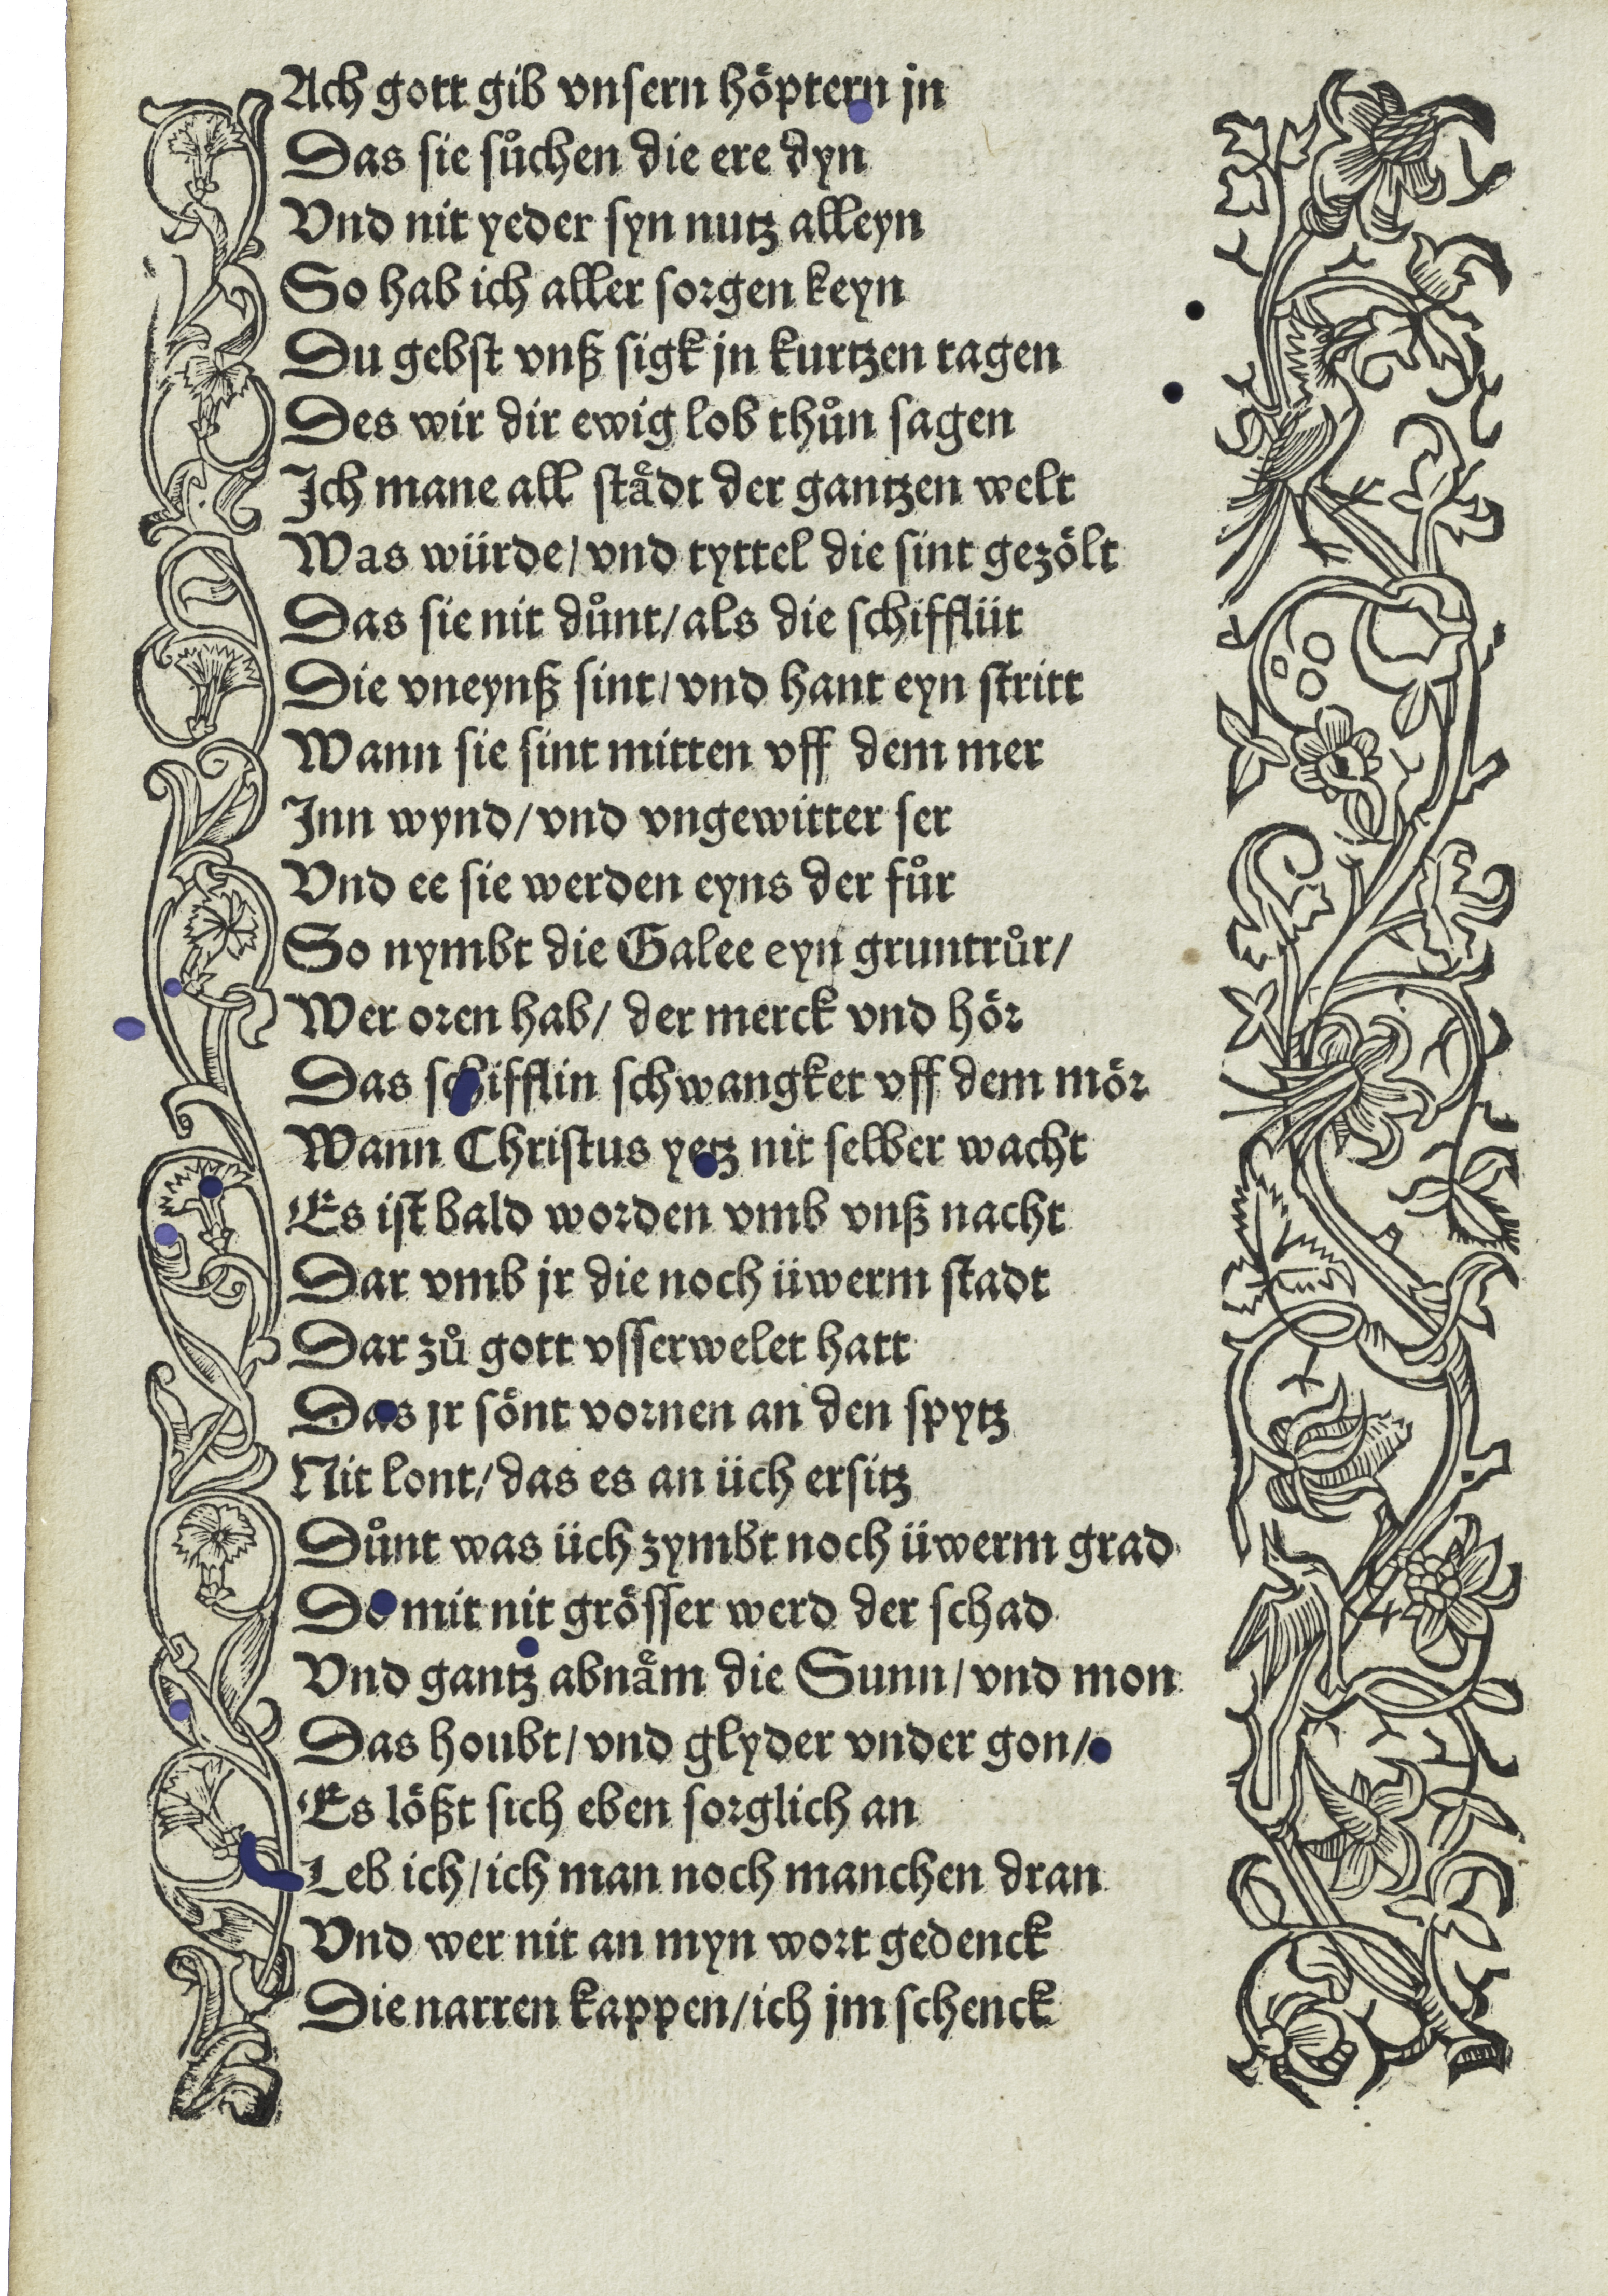 Ach gott gib vnsern hoͤptern jn
Das sie suͦchen die ere dyn
Vnd nit yeder syn nutz alleyn
So hab ich aller sorgen keyn
Du gebst vnß sigk jn kurtzen tagen
Des wir dir ewig lob thuͦn sagen
Ich mane all staͤdt der gantzen welt
Was würde/ vnd tyttel die sint gezoͤlt
Das sie nit duͦnt/ als die schifflüt
Die vneynß sint/ vnd hant eyn stritt
Wann sie sint mitten vff dem mer
Inn wynd/ vnd vngewitter ser
Vnd ee sie werden eyns der fuͦr
So nymbt die Galee eyn gruntruͦr/
Wer oren hab/ der merck vnd hoͤr
Das schifflin schwangket vff dem moͤr
Wann Christus yetz nit selber wacht
Es ist bald worden vmb vnß nacht
Dar vmb jr die noch üwerm stadt
Dar zuͦ gott vsserwelet hatt
Das jr soͤnt vornen an den spytz
Nit lont/ das es an üch ersitz
Duͦnt was üch zymbt noch üwerm grad
Do mit nit groͤsser werd der schad
Vnd gantz abnaͤm die Sunn/ vnd mon
Das houbt/ vnd glyder vnder gon/
Es loͤßt sich eben sorglich an
Leb ich/ ich man noch manchen dran
Vnd wer nit an myn wort gedenck
Die narren kappen/ ich jm schenck